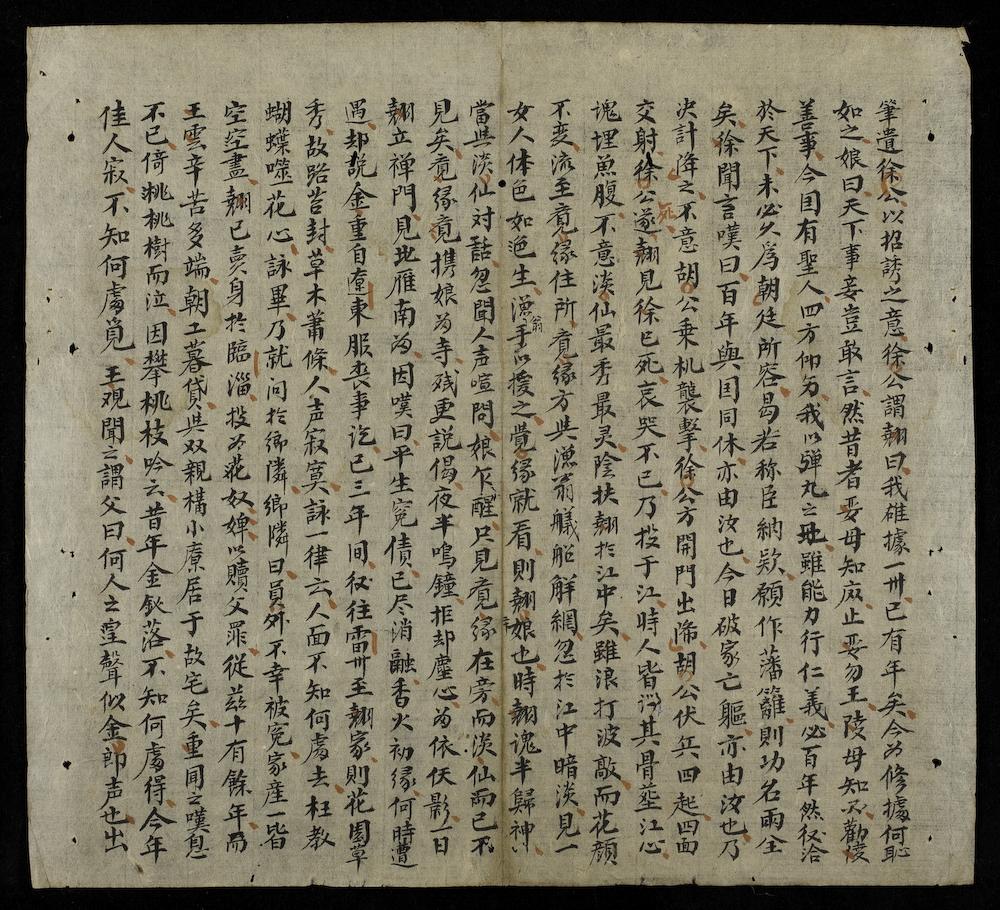 筆遣徐公以招誘之意徐公謂翹曰我雄據一卅已有年矣今为修據何耻
如之娘曰天下事妾豈敢言然昔者婴母知麻止婴勿王陵母知以勸陵
善事今国有聖人四方仰为我以弹丸之地雖能力行仁義必百年然後洽
於天下未必久為朝廷所容曷若称臣納欵願作藩籬則功名兩全
矣徐聞言嘆曰百年與国同休亦由汝也今日破家亡軀亦由汝也乃
决計降之不意胡公乘机襲擊徐公方開門出降胡公伏兵四起四面
交射徐公遂死翹見徐已死哀哭不已乃投于江時人皆謂其骨塟江心
塊埋魚腹不意淡仙最秀最灵陰扶翹於江中矣雖浪打波敲而花顔
不变流至覔缘住所覔缘方与漁翁艤舩觧網忽於江中暗淡見一
女人体色如浥生漁翁手以援之覺缘就看則翹娘也時翹魂半歸神
當与淡仙対話忽聞人声喧問娘乍醒只見覔缘在旁而淡仙而已不
見矣覔缘竟携娘为寺残更説偈夜半鳴鐘拒却塵心为依仸影一日
翹立禅門見北雁南为因嘆曰平生冤債已尽消融香火初缘何時遭
遇却説金重自遼東服丧事讫已三年间役往雷卅至翹家則花園草
秀故路苔封草木萧條人声寂寞詠一律云人面不知何處去枉教
蝴蝶噬花心詠畢乃就问於鄉隣鄉隣曰員外不幸被冤家産一皆
空空盡翹已卖身於臨淄投为花奴婢以贖父罪從兹十有餘年而
王雲辛苦多端朝工暮貸与双親構小寮居于故宅矣重闻之嘆息
不已倚桃桃樹而泣因攀桃枝吟云昔年金釵落不知何處得今年
佳人寂不知何處覓王观聞之謂父曰何人之霊聲似金郎声也出